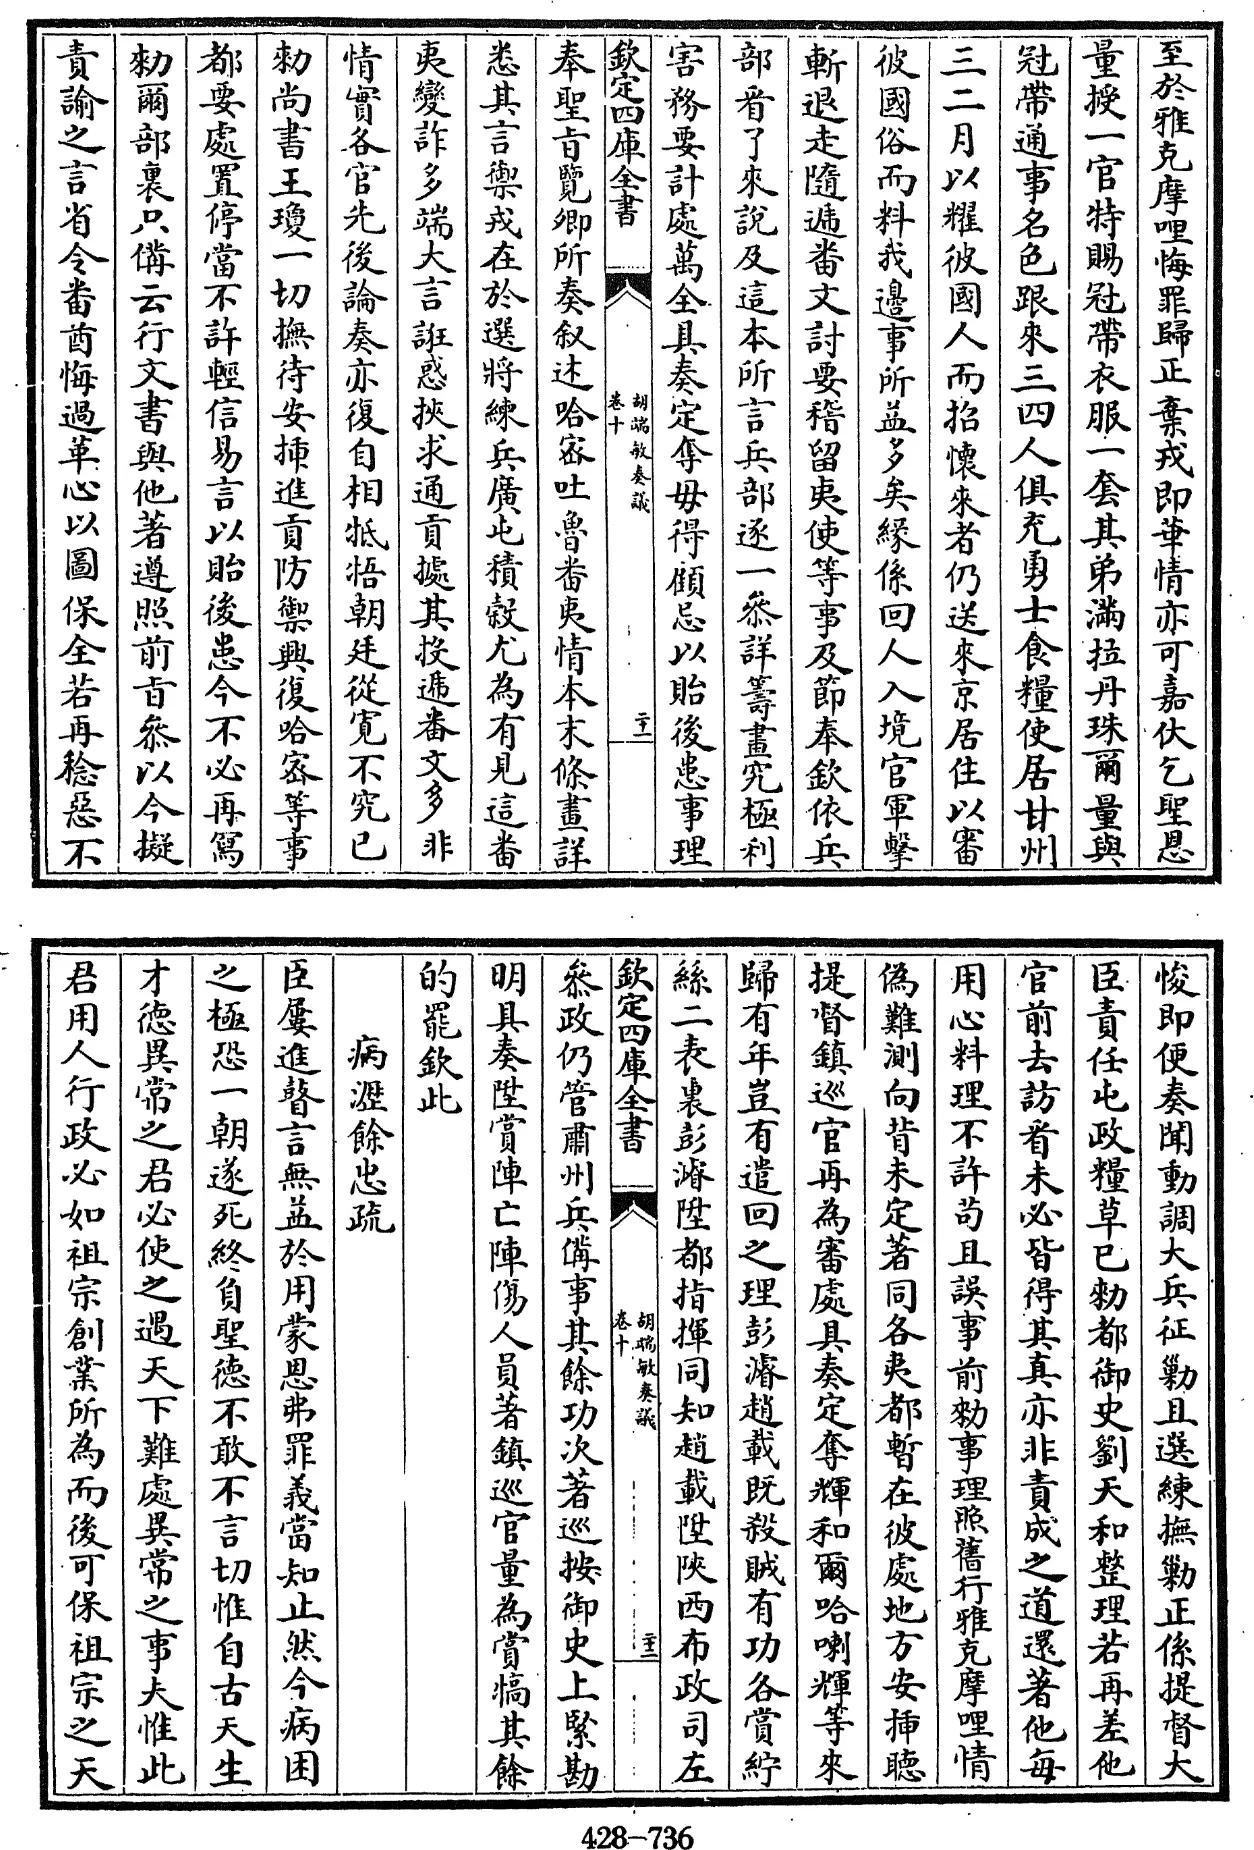 至於雅克摩哩悔罪歸正棄戎即華情亦可嘉伏乞聖恩
量授一官特賜冠帶衣服一套其弟滿拉丹珠爾量與
冠帶通事名色跟來三四人俱充勇士食糧使居甘州
三二月以耀彼國人而招懷來者仍送來京居住以審
彼國俗而料我邊事所益多矣縁係回人入境官軍擊
斬退走隨遞畨文討要稽留夷使等事及節奉欽依兵
部看了來說及這本所言兵部逐一叅詳籌畫究極利
害務要計處萬全具奏定奪毋得顧忌以貽後患事理
欽定四庫全書
胡端敏奏議
卷十
二十一
奉聖旨覽卿所奏叙述哈宻吐魯畨夷情本末條畫詳
悉其言禦戎在於選將練兵廣屯積穀尤為有見這畨
夷變詐多端大言誑惑挾求通貢據其投遞畨文多非
情實各官先後論奏亦復自相牴牾朝廷從寛不究已
勅尚書王瓊一切撫待安揷進貢防禦興復哈宻等事
都要處置停當不許輕信易言以貽後患今不必再寫
勅爾部裏只備云行文書與他著遵照前旨叅以今擬
責諭之言省令畨酋悔過革心以圖保全若再稔惡不
悛即便奏聞動調大兵征勦且選練撫勦正係提督大
臣責任屯政糧草已勅都御史劉天和整理若再差他
官前去訪看未必皆得其真亦非責成之道還著他每
用心料理不許苟且誤事前勅事理照舊行雅克摩哩情
偽難測向背未定著同各夷都暫在彼處地方安揷聽
提督鎮巡官再為審處具奏定奪輝和爾哈喇輝等來
歸有年豈有遣回之理彭濬趙載既殺賊有功各賞紵
絲二表裏彭濬陞都指揮同知趙載陞陜西布政司左
欽定四庫全書
胡端敏奏議
卷十
二十二
叅政仍管肅州兵備事其餘功次著巡按御史上緊勘
明具奏陞賞陣亡陣傷人員著鎮巡官量為賞犒其餘
的罷欽此
病瀝餘忠疏
臣屢進瞽言無益於用蒙恩弗罪義當知止然今病困
之極恐一朝遂死終負聖徳不敢不言切惟自古天生
才徳異常之君必使之遇天下難處異常之事夫惟此
君用人行政必如祖宗創業所為而後可保祖宗之天
428-736